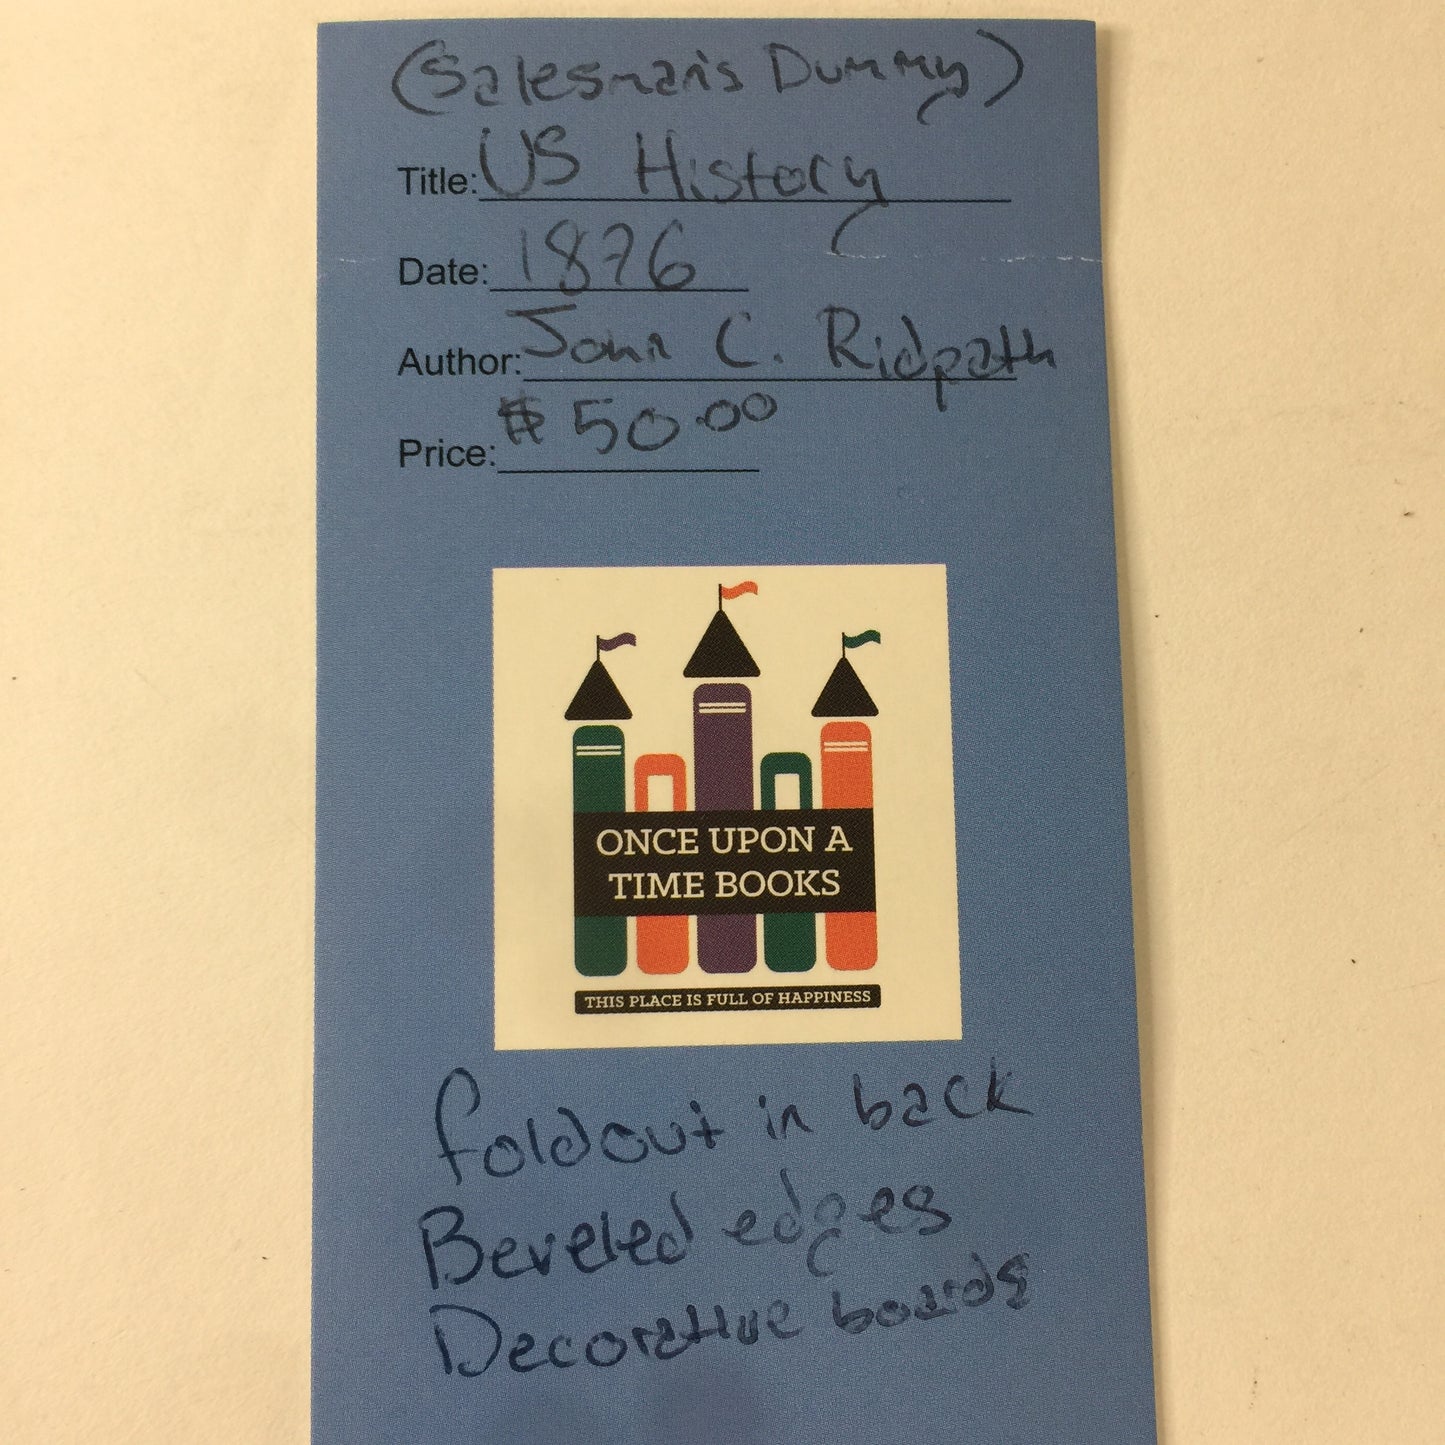 (Salesman's Dummy)
Title: US History
Date: 1876
Author: John C. Ridpath
Price: $50.00
ONCE UPON A
TIME BOOKS
THIS PLACE IS FULL OF HAPPINESS
foldout in back
Beveled edges
Decorative boards